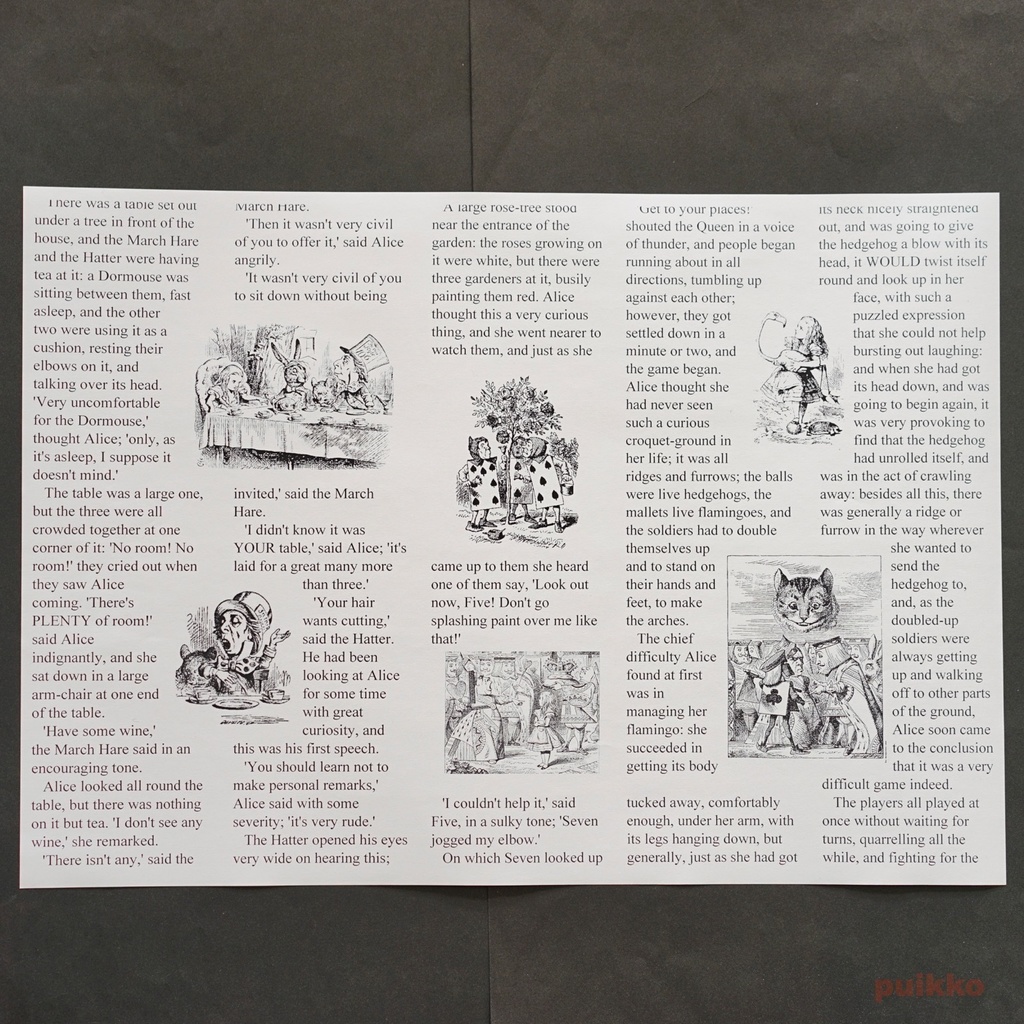 There was a table set out
under a tree in front of the
house, and the March Hare
and the Hatter were having
tea at it: a Dormouse was
sitting between them, fast
asleep, and the other
two were using it as a
cushion, resting their
elbows on it, and
talking over its head.
'Very uncomfortable
for the Dormouse,'
thought Alice; 'only, as
it's asleep, I suppose it
doesn't mind.'
The table was a large one,
but the three were all
crowded together at one
corner of it: 'No room! No
room!' they cried out when
they saw Alice
coming. 'There's
PLENTY of room!'
said Alice
indignantly, and she
sat down in a large
arm-chair at one end
of the table.
'Have some wine,'
the March Hare said in an
encouraging tone.
Alice looked all round the
table, but there was nothing
on it but tea. 'I don't see any
wine,' she remarked.
'There isn't any,' said the
March Hare.
'Then it wasn't very civil
of you to offer it,' said Alice
angrily.
'It wasn't very civil of you
to sit down without being
invited,' said the March
Hare.
'I didn't know it was
YOUR table,' said Alice; 'it's
laid for a great many more
than three.'
'Your hair
wants cutting,'
said the Hatter.
He had been
looking at Alice
for some time
with great
curiosity, and
this was his first speech.
'You should learn not to
make personal remarks,'
Alice said with some
severity; 'it's very rude.'
The Hatter opened his eyes
very wide on hearing this;
A large rose-tree stood
near the entrance of the
garden: the roses growing on
it were white, but there were
three gardeners at it, busily
painting them red. Alice
thought this a very curious
thing, and she went nearer to
watch them, and just as she
came up to them she heard
one of them say, 'Look out
now, Five! Don't go
splashing paint over me like
that!'
'I couldn't help it,' said
Five, in a sulky tone; 'Seven
jogged my elbow.'
On which Seven looked up
'Get to your places!'
shouted the Queen in a voice
of thunder, and people began
running about in all
directions, tumbling up
against each other;
however, they got
settled down in a
minute or two, and
the game began.
Alice thought she
had never seen
such a curious
croquet-ground in
her life; it was all
ridges and furrows; the balls
were live hedgehogs, the
mallets live flamingoes, and
the soldiers had to double
themselves up
and to stand on
their hands and
feet, to make
the arches.
The chief
difficulty Alice
found at first
was in
managing her
flamingo: she
succeeded in
getting its body
tucked away, comfortably
enough, under her arm, with
its legs hanging down, but
generally, just as she had got
its neck nicely straightened
out, and was going to give
the hedgehog a blow with its
head, it WOULD twist itself
round and look up in her
face, with such a
puzzled expression
that she could not help
bursting out laughing:
and when she had got
its head down, and was
going to begin again, it
was very provoking to
find that the hedgehog
had unrolled itself, and
was in the act of crawling
away: besides all this, there
was generally a ridge or
furrow in the way wherever
she wanted to
send the
hedgehog to,
and, as the
doubled-up
soldiers were
always getting
up and walking
off to other parts
of the ground,
Alice soon came
to the conclusion
that it was a very
difficult game indeed.
The players all played at
once without waiting for
turns, quarrelling all the
while, and fighting for the
puikko